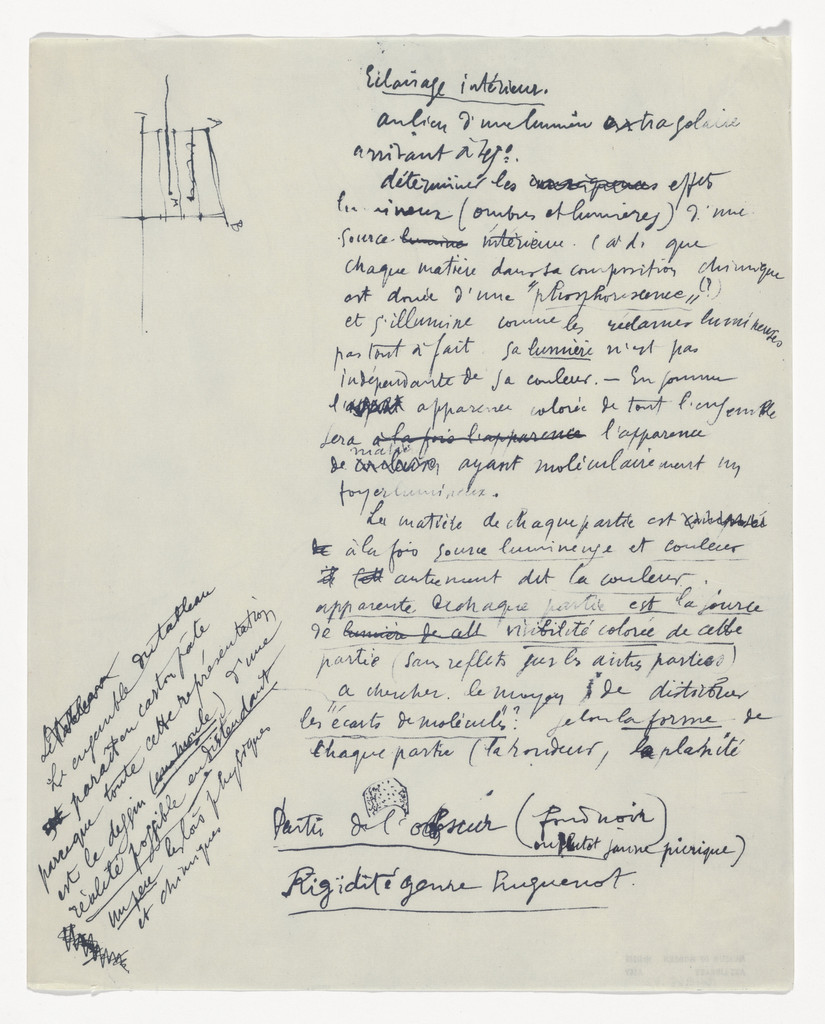 Eclairage intérieur.
au lieu d'une lumière extrasolaire
arrivant à
déterminer les effets
lumineux (ombres et lumières) d'une
source lumine intérieure. c à d. que
chaque matière dans sa composition chimique
est douée d'une "phosphorescence" (?)
et s'illumine comme les réclames lumineuses
pas tout à fait sa lumière n'est pas
indépendante de sa couleur. — En somme
l' apparence colorée de tout l'ensemble
sera à la fois l'apparence l'apparence
de matière ayant moléculairement un
foyer lumineux.
La matière de chaque partie est
à la fois source lumineuse et couleur
autrement dit la couleur
apparente de chaque partie est la source
de lumière de cett visibilité colorée de cette
partie (sans reflets sur les autres parties)
a chercher. le moyen de distribuer
les "écarts de molécules"? selon la forme de
chaque partie (la rondeur, la planité
Partir de l'obscur (fond noir)
ou plutot jaune picrique)
Rigidité genre Huguenot.
Le tableau
Le ensemble du tableau
paraît en carton pâte
parceque toute cette représentation
est le dessin (un moule) d'une
réalité possible en distendant
un peu les lois physiques
et chimiques
B